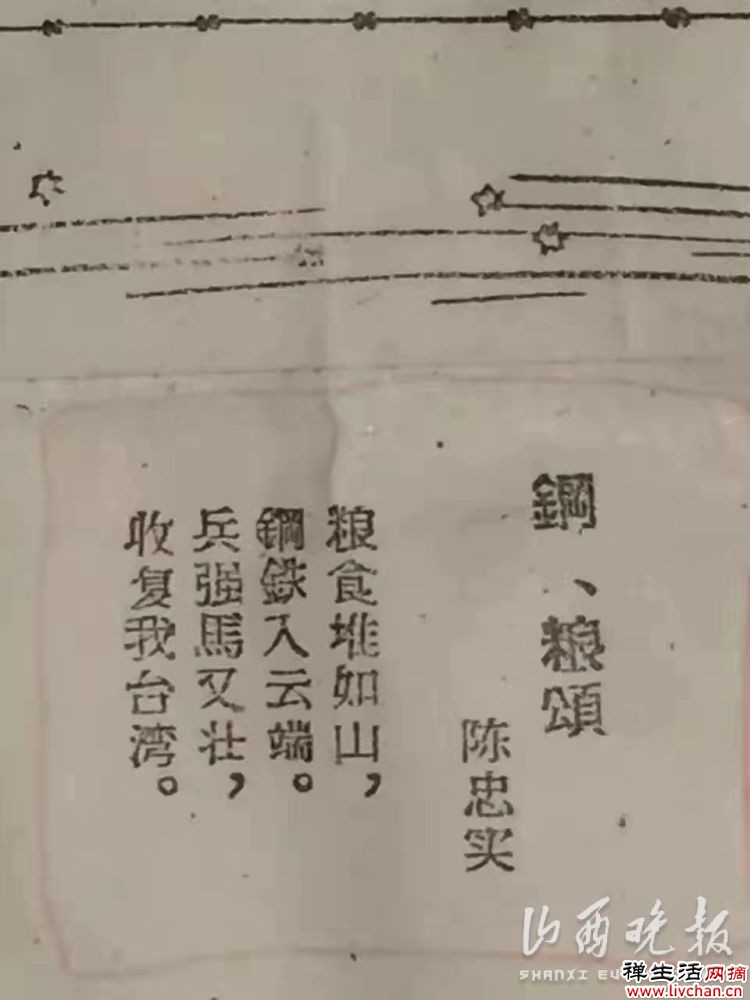 鋼、粮頌
陈忠实
粮食堆如山，
鋼鉄入云端。
兵强馬又壮，
收复我台湾。
山西晚报
禅生活网摘
www.livchan.cn